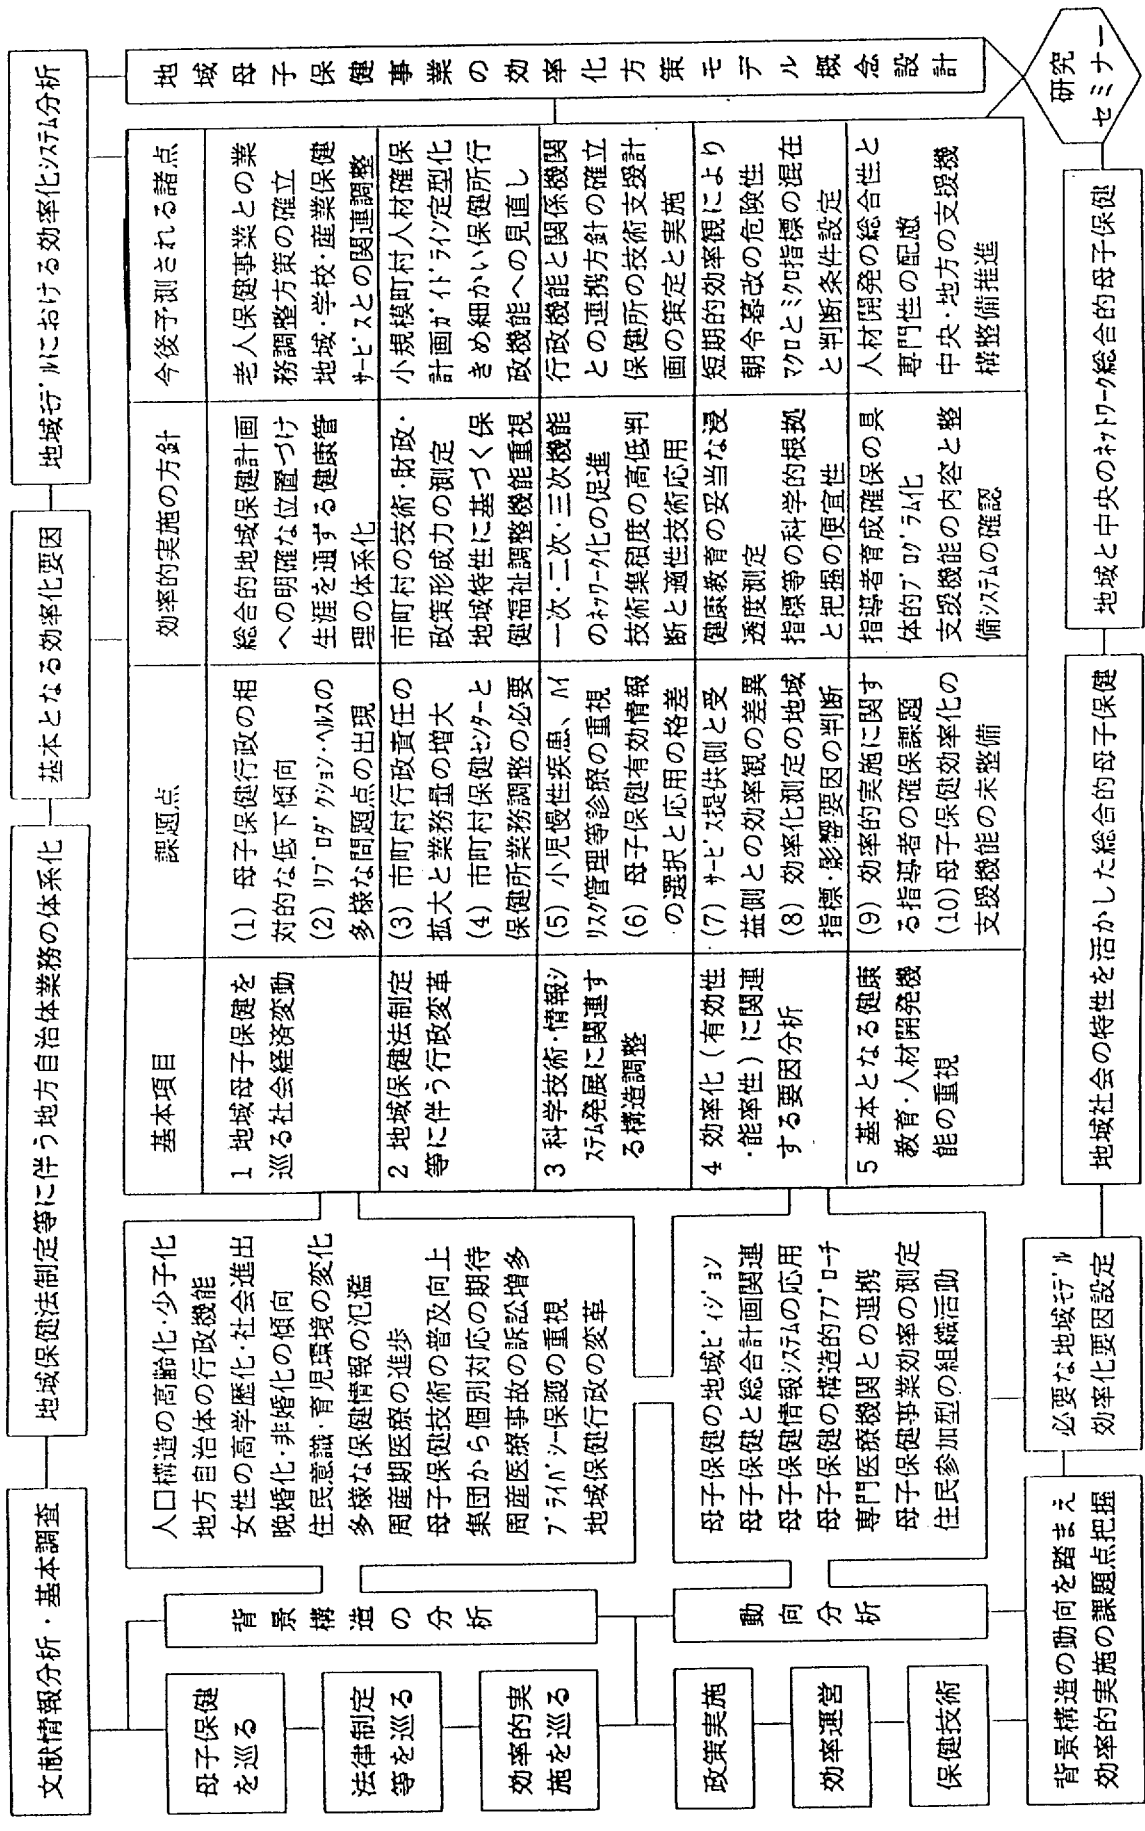 文献情報分析・基本調査
地域保健法制定等に伴う地方自治体業務の体系化
基本となる効率化要因
地域モデルにおける効率化システム分析
母子保健
を巡る
法律制定
等を巡る
効率的実
施を巡る
政策実施
効率運営
保健技術
背景構造の分析
動向分析
人口構造の高齢化・少子化
地方自治体の行政機能
女性の高学歴化・社会進出
晩婚化・非婚化の傾向
住民意識・育児環境の変化
多様な保健情報の氾濫
周産期医療の進歩
母子保健技術の普及向上
集団から個別対応の期待
周産医療事故の訴訟増多
プライバシー保護の重視
地域保健行政の変革
母子保健の地域ビィジョン
母子保健と総合計画関連
母子保健情報システムの応用
母子保健の構造的アプローチ
専門医療機関との連携
母子保健事業効率の測定
住民参加型の組織活動
基本項目
課題点
効率的実施の方針
今後予測される諸点
1 地域母子保健を
巡る社会経済変動
(1) 母子保健行政の相
対的な低下傾向
(2) リプロダクション・ヘルスの
多様な問題点の出現
総合的地域保健計画
への明確な位置づけ
生涯を通ずる健康管
理の体系化
老人保健事業との業
務調整方策の確立
地域・学校・産業保健
サービスとの関連調整
2 地域保健法制定
等に伴う行政変革
(3) 市町村行政責任の
拡大と業務量の増大
(4) 市町村保健センターと
保健所業務調整の必要
市町村の技術・財政・
政策形成力の測定
地域特性に基づく保
健福祉調整機能重視
小規模町村人材確保
計画ガイドライン定型化
きめ細かい保健所行
政機能への見直し
3 科学技術・情報シ
ステム発展に関連す
る構造調整
(5) 小児慢性疾患、ハイ
リスク管理等診療の重視
(6) 母子保健有効情報
の選択と応用の格差
一次・二次・三次機能
のネットワーク化の促進
技術集積度の高低判
断と適性技術応用
行政機能と関係機関
との連携方針の確立
保健所の技術支援計
画の策定と実施
4 効率化(有効性
・能率性)に関連
する要因分析
(7) サービス提供側と受
益側との効率観の差異
(8) 効率化測定の地域
指標・影響要因の判断
健康教育の妥当な浸
透度測定
指標等の科学的根拠
と把握の便宜性
短期的効率観により
朝令暮改の危険性
マクロとミクロ指標の混在
と判断条件設定
5 基本となる健康
教育・人材開発機
能の重視
(9) 効率的実施に関す
る指導者の確保課題
(10)母子保健効率化の
支援機能の未整備
指導者育成確保の具
体的プログラム化
支援機能の内容と整
備システムの確認
人材開発の総合性と
専門性の配慮
中央・地方の支援機
構整備推進
地域母子保健事業の効率化方策モデル概念設計
背景構造の動向を踏まえ
効率的実施の課題点把握
必要な地域モデル
効率化要因設定
地域社会の特性を活かした総合的母子保健
地域と中央のネットワーク総合的母子保健
研究
セミナー